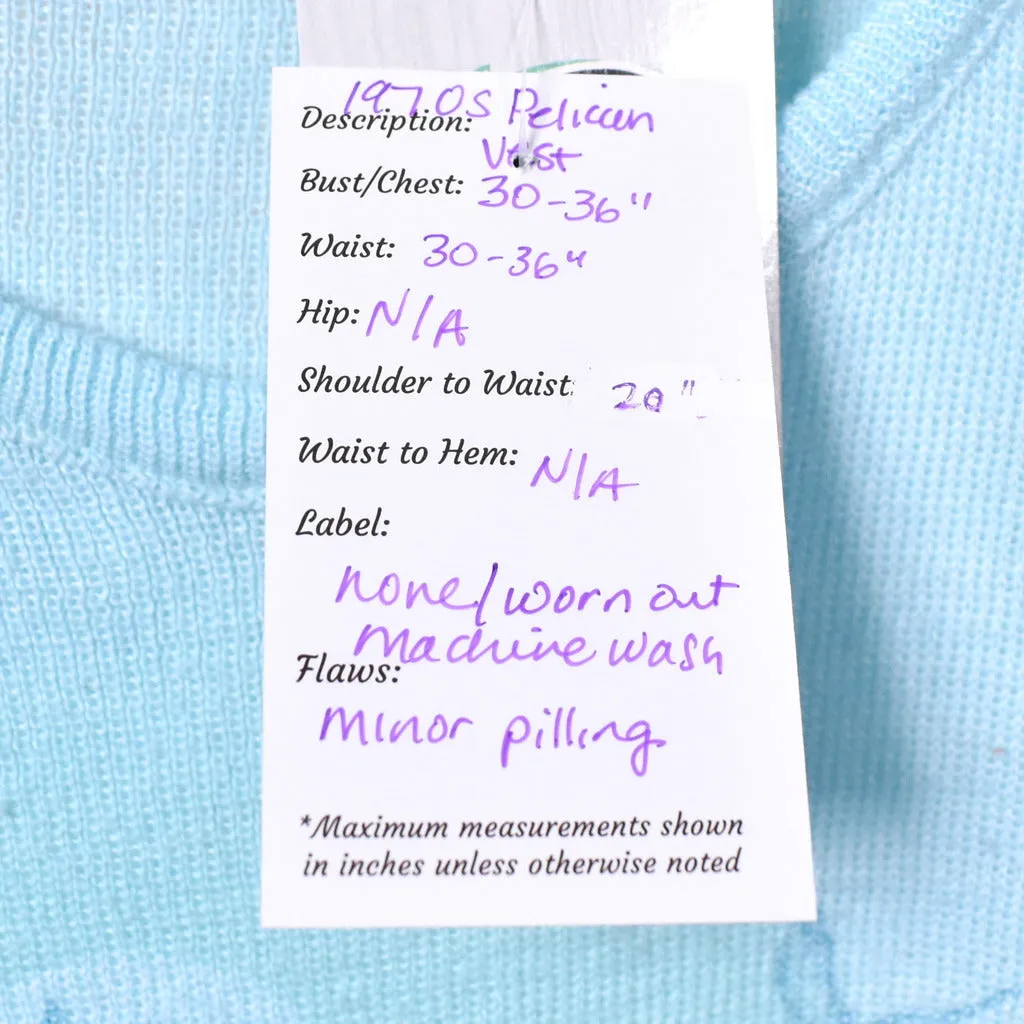 Description: 1970s Pelican
Vest
Bust/Chest: 30-36"
Waist: 30-36"
Hip: N/A
Shoulder to Waist: 20"
Waist to Hem: N/A
Label:
none/worn out
Machine wash
Flaws:
Minor pilling
*Maximum measurements shown
in inches unless otherwise noted